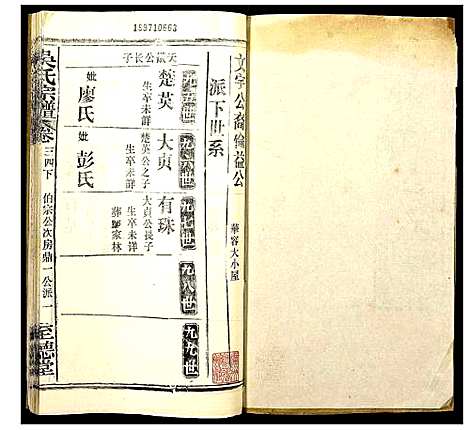 文宇公裔倫益公
派下世系
華容大小屋
159710663
九五世
天敍公長子
楚英
生卒未詳
妣
廖氏
九六世
大貞
楚英公之子
生卒未詳
妣
彭氏
九七世
有珠
大貞公長子
生卒未详
葬 家林
九八世
九九世
吳氏宗譜
卷三四下
伯宗公次房鼎一公派一
至德堂